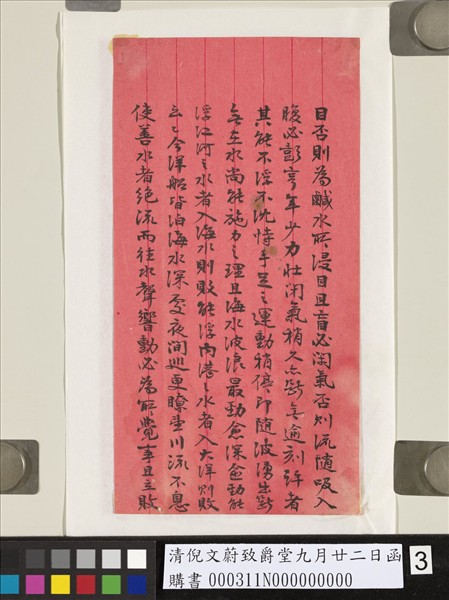 目否則為鹹水所浸目且盲必闭氣否則流隨吸入
腹必彭亨年少力壯闭氣稍久亦斷無逾刻許者
其能不浮不沈恃手足之運動稍停即隨波湧出斷
無在水尚能施力之理且海水波浪最勁愈深愈勁能
浮江河之水者入海水則敗能浮內港之水者入大洋則敗
云云今洋船皆泊海水深處夜间巡更瞭望川流不息
使善水者絶流而往水聲響動必為所覺事且立敗
清倪文蔚致爵堂九月廿二日函
購書 000311N000000000
3